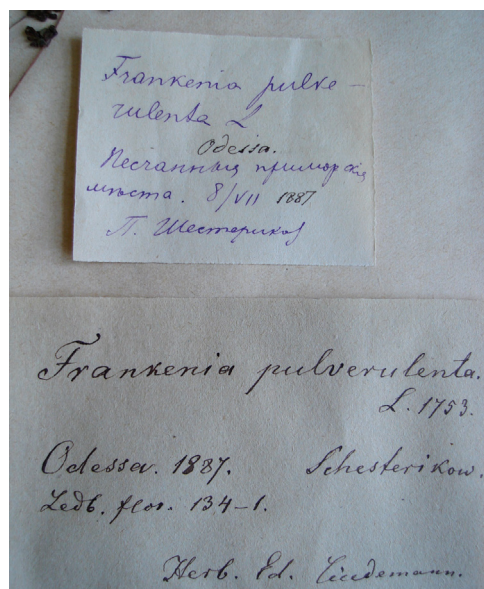 Frankenia pulve-
rulenta L
Odessa.
Песчанныя приморскія
мѣста. 8/VII 1887
П. Шестериковъ
Frankenia pulverulenta.
L. 1753.
Odessa. 1887. Schesterikow.
Ledb. flor. 134-1.
Herb. Ed. Lindemann.